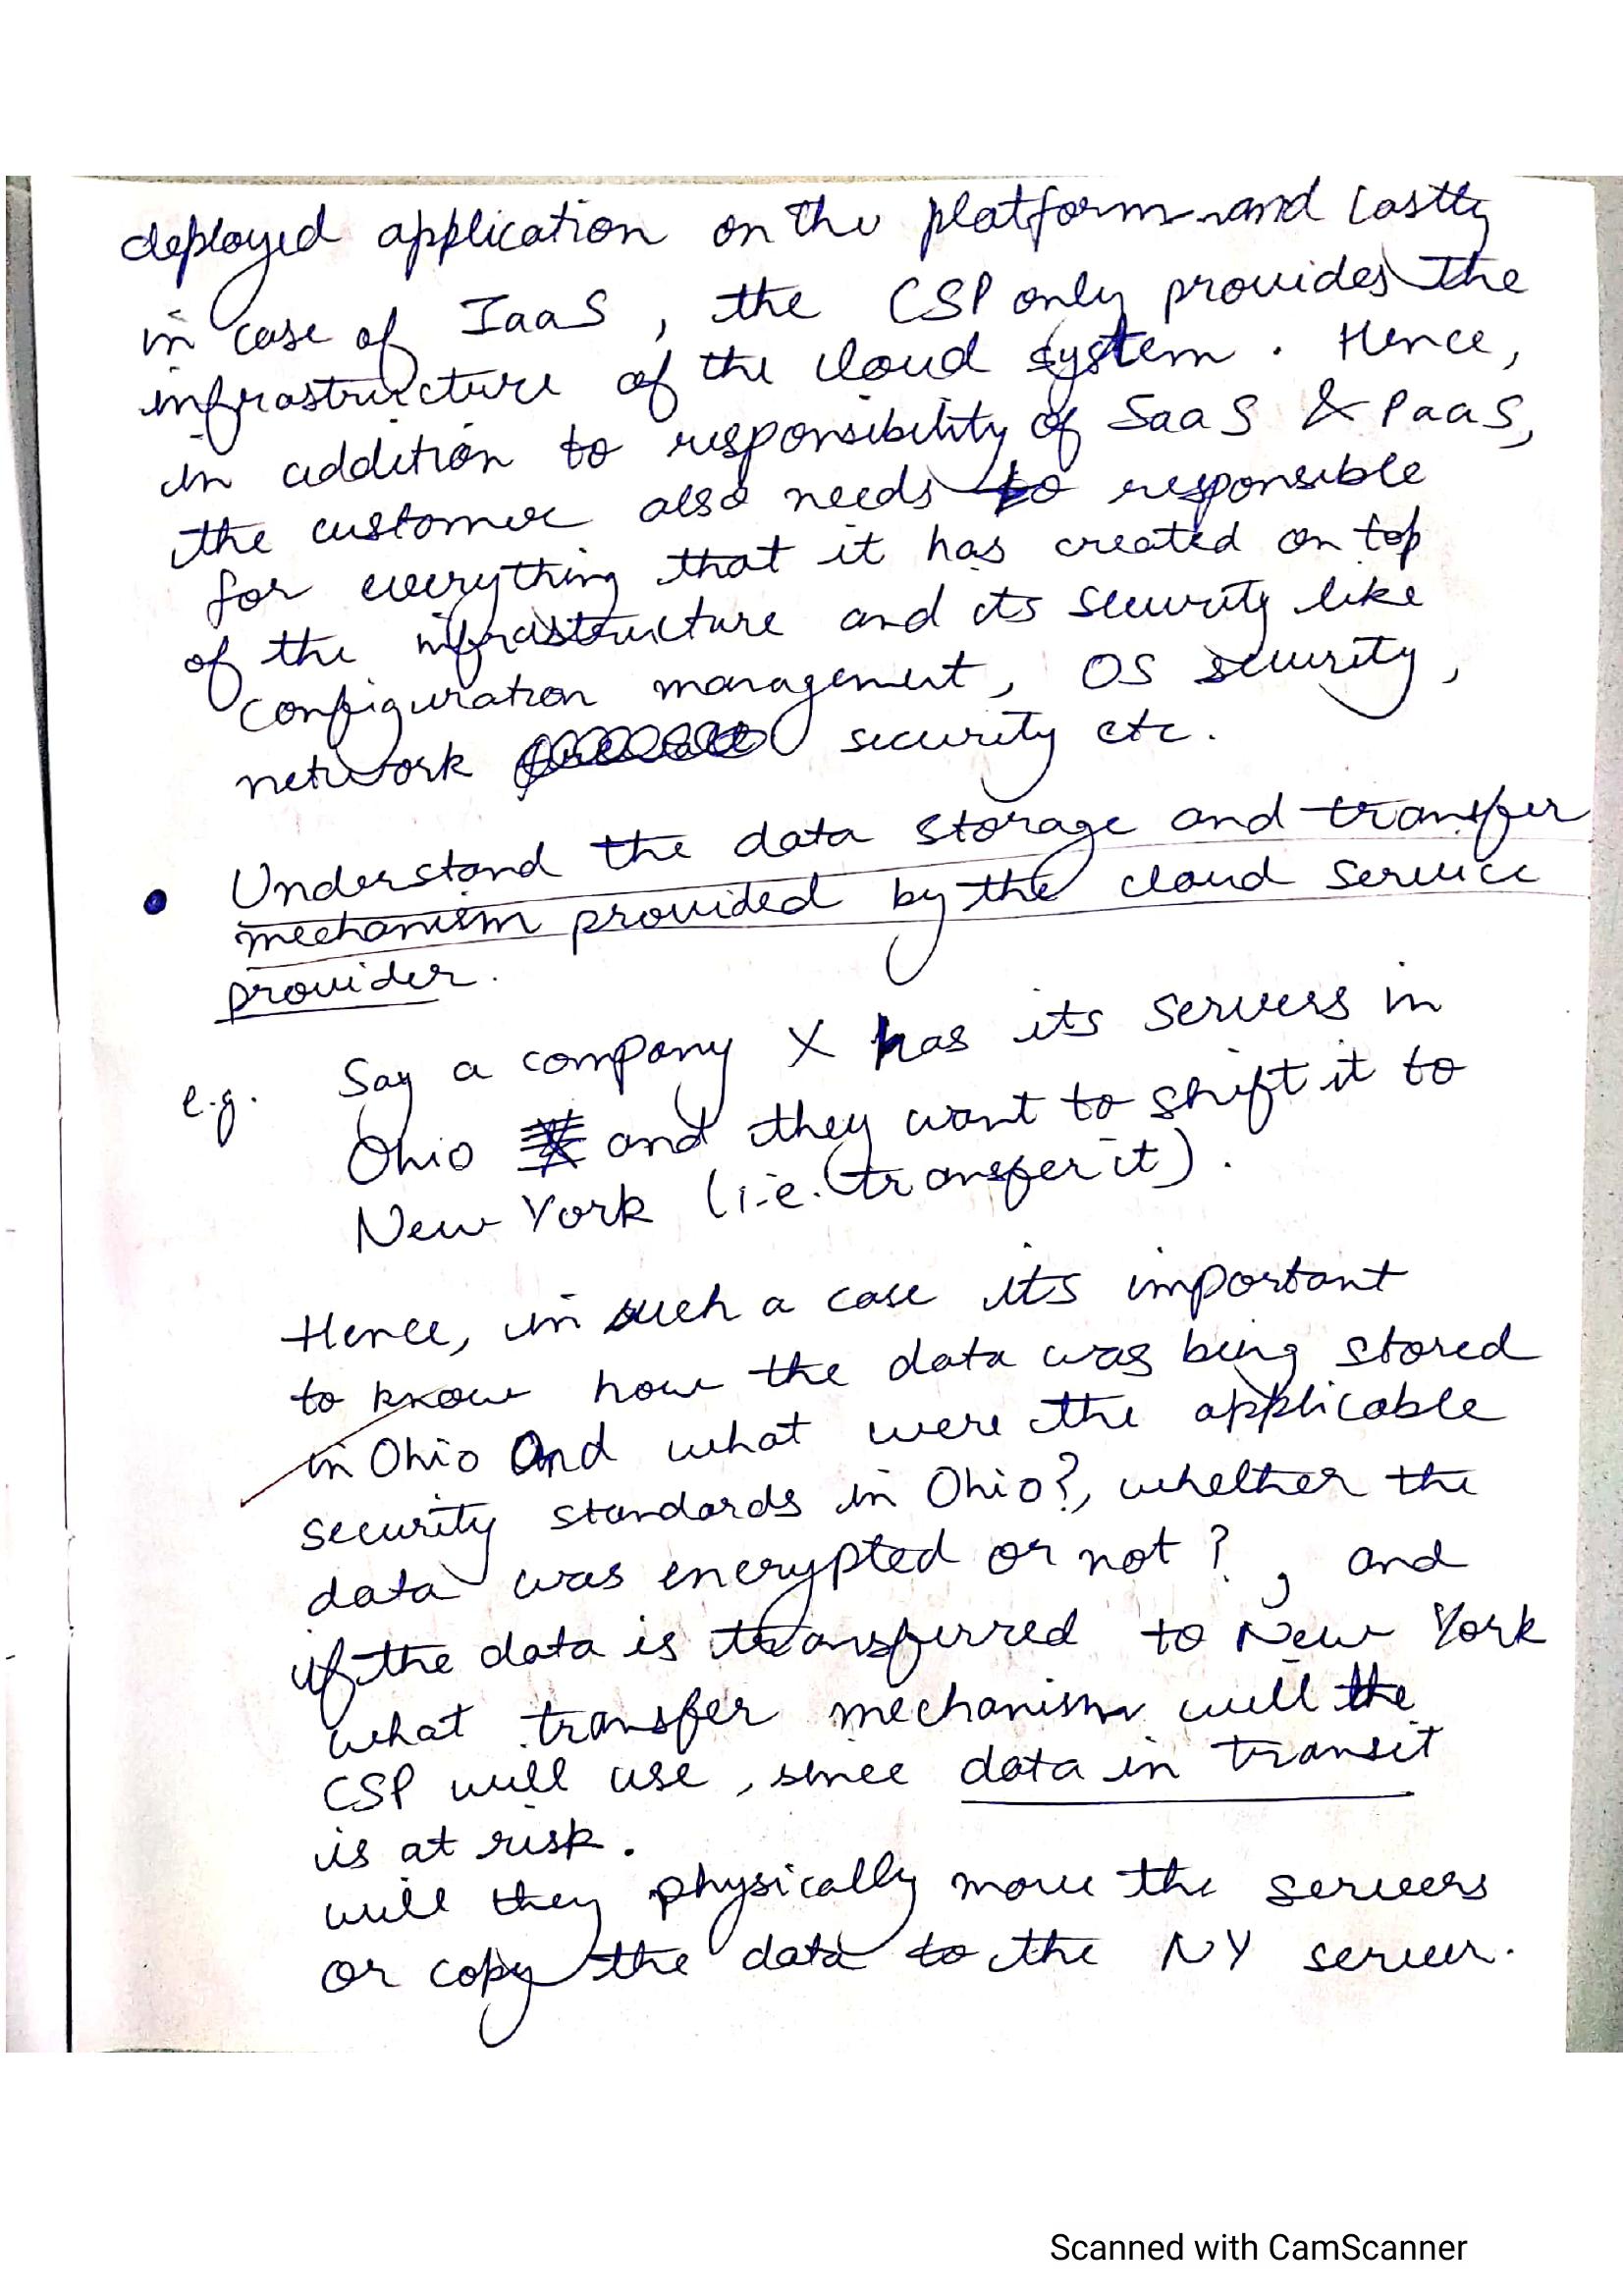 deployed application on the platform and lastly
in case of IaaS, the CSP only provides the
infrastructure of the cloud system. Hence,
in addition to responsibility of SaaS & PaaS,
the customer also needs to responsible
for everything that it has created on top
of the infrastructure and its security like
configuration management, OS security,
network security etc.
• Understand the data storage and transfer
mechanism provided by the cloud service
provider.
e.g. Say a company X has its servers in
Ohio and they want to shift it to
New York (i.e. transfer it).
Hence, in such a case its important
to know how the data was being stored
in Ohio And what were the applicable
security standards in Ohio?, whether the
data was encrypted or not?, and
if the data is transferred to New York
what transfer mechanism will the
CSP will use, since data in transit
is at risk.
will they physically move the servers
or copy the data to the NY server.
Scanned with CamScanner